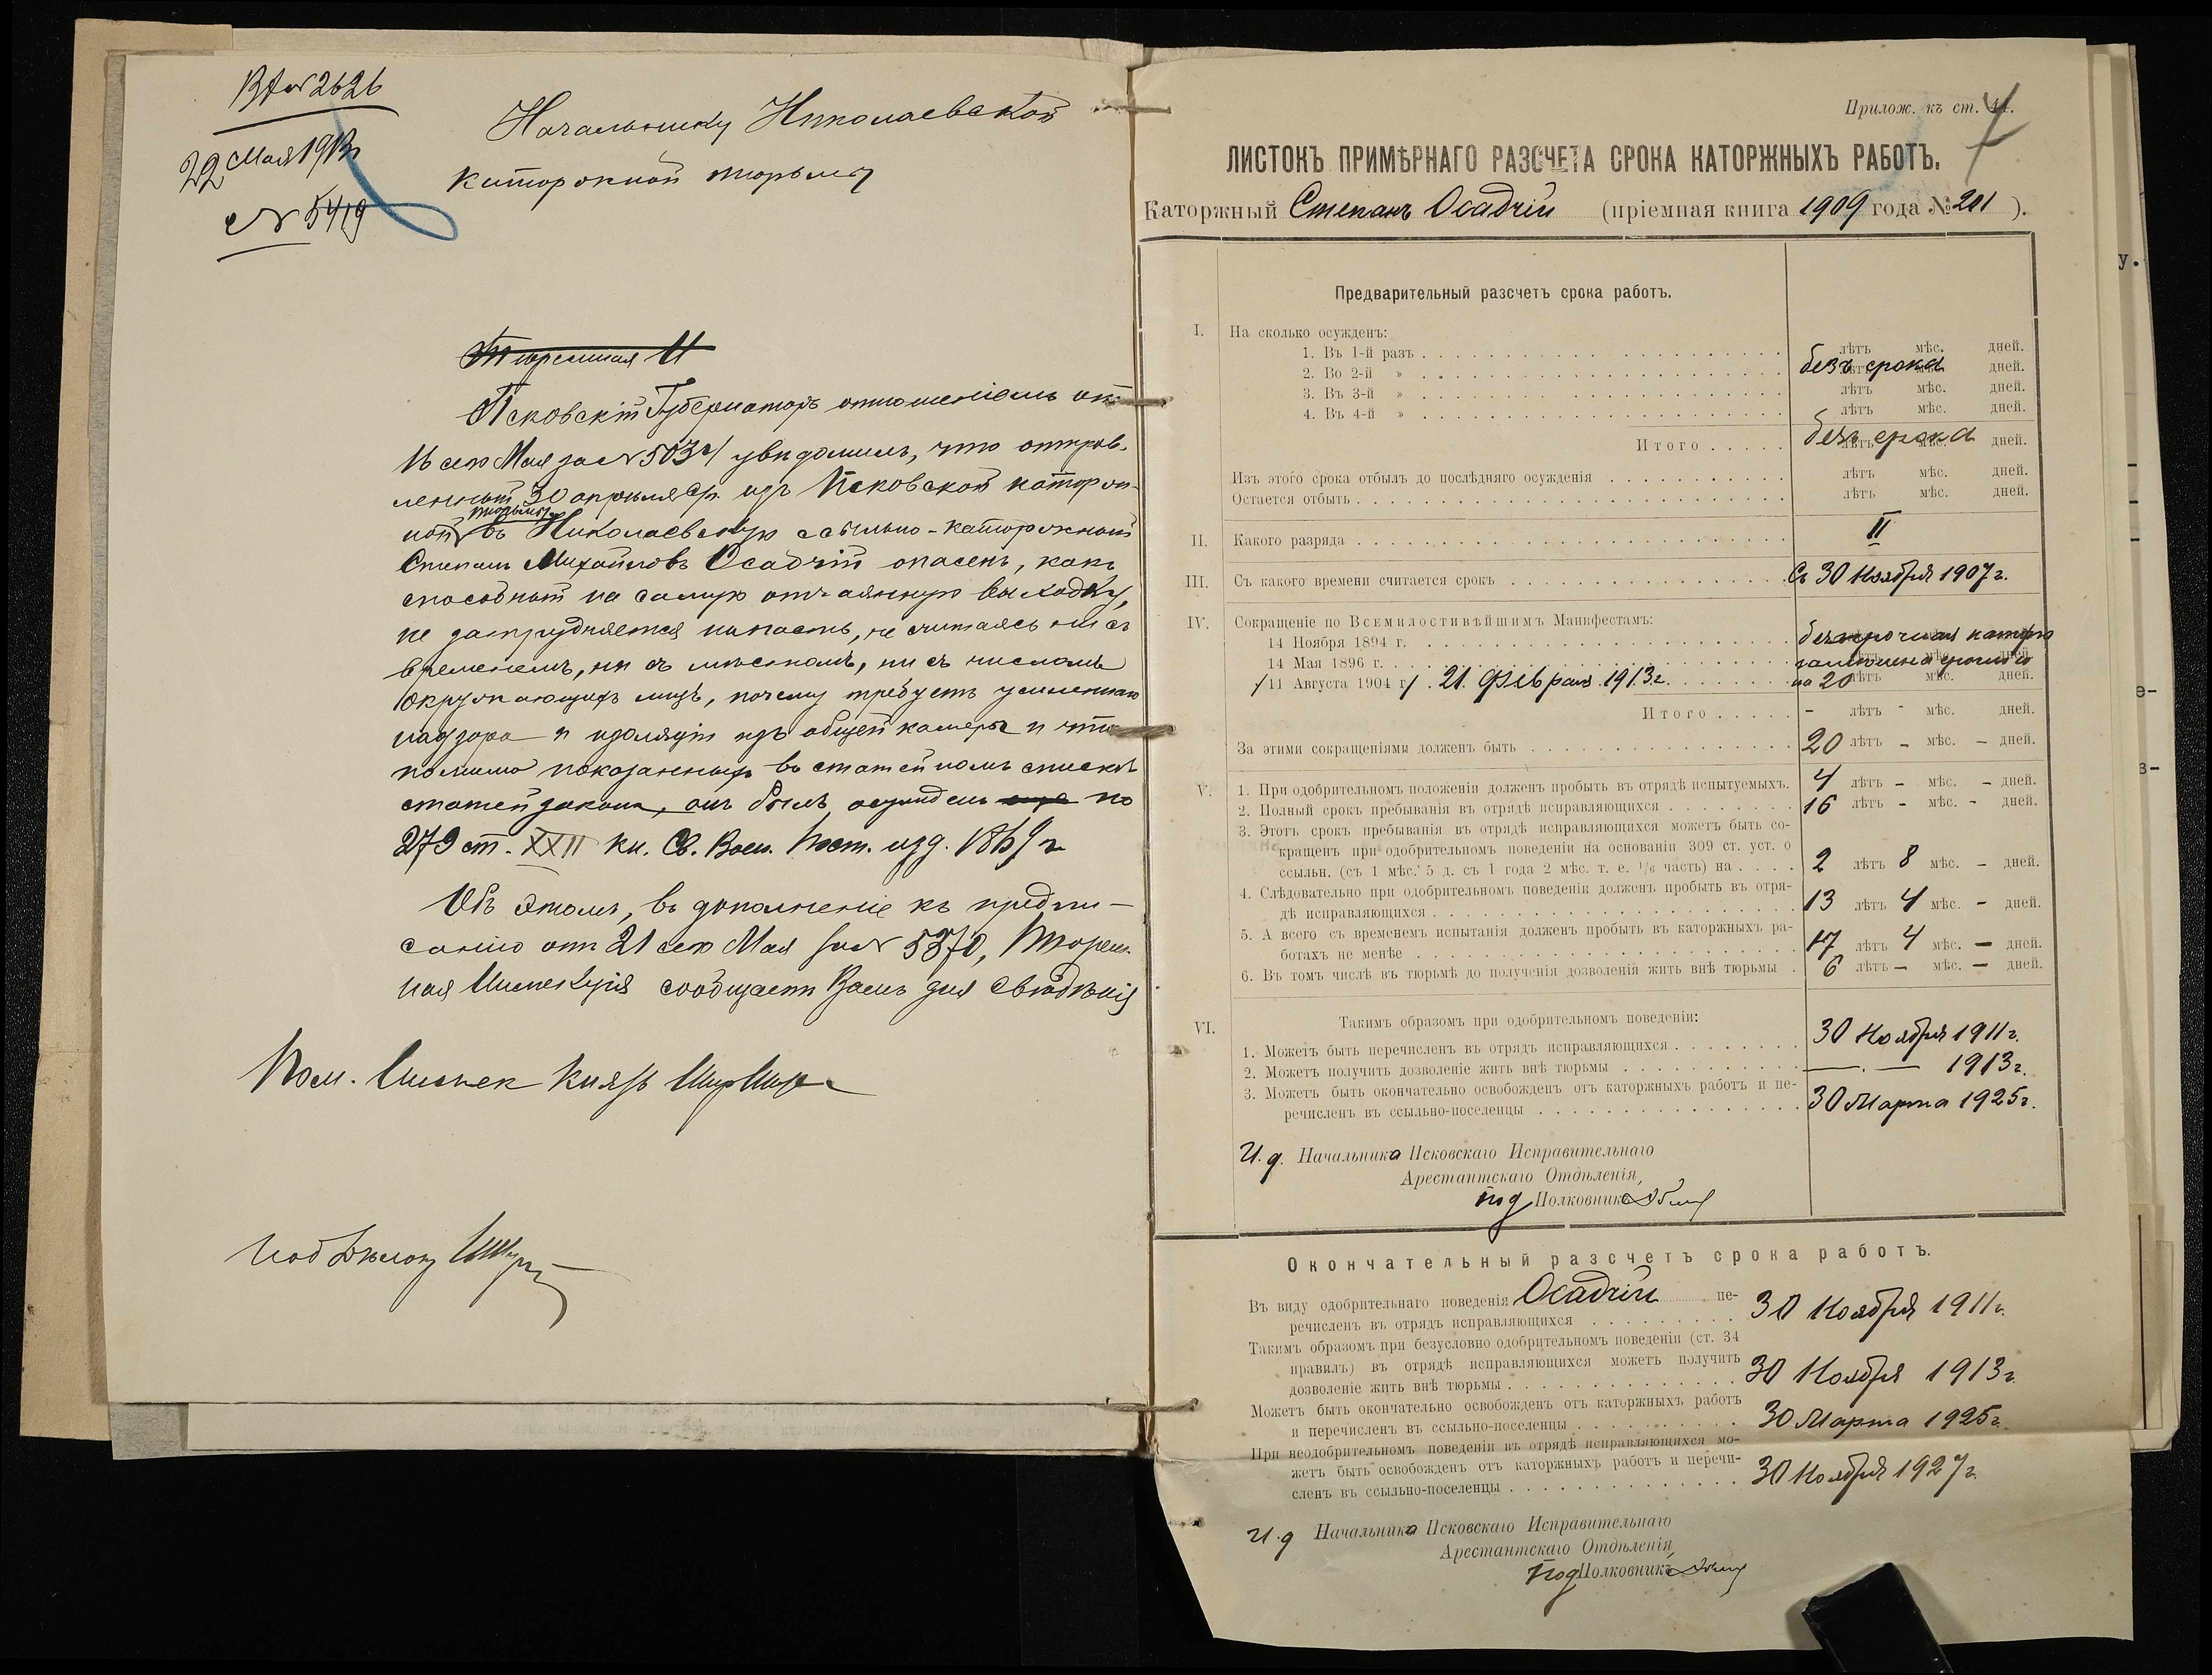 22 Мая 1913
№ 5419
Начальнику Николаевской
каторжной тюрьмы
Псковскій Губернаторъ отношеніемъ от
16 сего Мая за № 5034 увѣдомилъ, что отправ-
ленный 30 апрѣля с.г. изъ Псковской каторж-
тюрьмы
ной въ Николаевскую ссыльно-каторжный
Степанъ Михайловъ Осадчій опасенъ, какъ
способный на самую отчаянную выходку,
не затрудняется напасть, не считаясь ни съ
временемъ, ни съ мѣстомъ, ни съ числомъ
окружающихъ лицъ, почему требуетъ усиленнаго
надзора и изоляціи изъ общей камеры и что
помимо показанныхъ въ статейномъ спискѣ
статей закона, онъ былъ осужденъ по
279 ст. XXII кн. Св. Воен. Пост. изд. 1869 г.
Объ этомъ, въ дополненіе къ предпи-
санію отъ 21 сего Мая за № 5370, Тюрем-
ная Инспекція сообщаетъ Вамъ для свѣдѣнія
Пом. Инспек Князь
Прилож. къ ст. 44.
ЛИСТОКЪ ПРИМѢРНАГО РАЗСЧЕТА СРОКА КАТОРЖНЫХЪ РАБОТЪ.
Каторжный Степанъ Осадчій (пріемная книга 1909 года № 201 ).
Предварительный разсчетъ срока работъ.
I. На сколько осужденъ:
1. Въ 1-й разъ лѣтъ мѣс. дней.
2. Во 2-й » безъ срока дней.
3. Въ 3-й » лѣтъ мѣс. дней.
4. Въ 4-й » лѣтъ мѣс. дней.
Итого безъ срока дней.
Изъ этого срока отбылъ до послѣдняго осужденія лѣтъ мѣс. дней.
Остается отбыть лѣтъ мѣс. дней.
II. Какого разряда II
III. Съ какого времени считается срокъ Съ 30 Ноября 1907 г.
IV. Сокращеніе по Всемилостивѣйшимъ Манифестамъ:
14 Ноября 1894 г. безсрочная каторга
14 Мая 1896 г. замѣнена срочной
/11 Августа 1904 г/ 21 Февраля 1913 г. на 20 лѣтъ мѣс. дней.
Итого - лѣтъ - мѣс. дней.
За этими сокращеніями долженъ быть 20 лѣтъ - мѣс. - дней.
V. 1. При одобрительномъ положеніи долженъ пробыть въ отрядѣ испытуемыхъ. 4 лѣтъ - мѣс. - дней.
2. Полный срокъ пребыванія въ отрядѣ исправляющихся 16 лѣтъ - мѣс. - дней.
3. Этотъ срокъ пребыванія въ отрядѣ исправляющихся можетъ быть со-
кращенъ при одобрительномъ поведеніи на основаніи 309 ст. уст. о
ссыльн. (съ 1 мѣс. 5 д. съ 1 года 2 мѣс. т. е. 1/6 часть) на 2 лѣтъ 8 мѣс. - дней.
4. Слѣдовательно при одобрительномъ поведеніи долженъ пробыть въ отря-
дѣ исправляющихся 13 лѣтъ 4 мѣс. - дней.
5. А всего съ временемъ испытанія долженъ пробыть въ каторжныхъ ра-
ботахъ не менѣе 17 лѣтъ 4 мѣс. - дней.
6. Въ томъ числѣ въ тюрьмѣ до полученія дозволенія жить внѣ тюрьмы 6 лѣтъ - мѣс. - дней.
VI. Такимъ образомъ при одобрительномъ поведеніи:
1. Можетъ быть перечисленъ въ отрядъ исправляющихся 30 Ноября 1911 г.
2. Можетъ получить дозволеніе жить внѣ тюрьмы — . — 1913 г.
3. Можетъ быть окончательно освобожденъ отъ каторжныхъ работъ и пе-
речисленъ въ ссыльно-поселенцы 30 Марта 1925 г.
И. д. Начальника Псковскаго Исправительнаго
Арестантскаго Отдѣленія,
подПолковникъ
Окончательный разсчетъ срока работъ.
Въ виду одобрительнаго поведенія Осадчій пе-
речисленъ въ отрядъ исправляющихся 30 Ноября 1911 г.
Такимъ образомъ при безусловно одобрительномъ поведеніи (ст. 34
правилъ) въ отрядѣ исправляющихся можетъ получить
дозволеніе жить внѣ тюрьмы 30 Ноября 1913 г.
Можетъ быть окончательно освобожденъ отъ каторжныхъ работъ
и перечисленъ въ ссыльно-поселенцы 30 Марта 1925 г.
При неодобрительномъ поведеніи въ отрядѣ исправляющихся мо-
жетъ быть освобожденъ отъ каторжныхъ работъ и перечи-
сленъ въ ссыльно-поселенцы 30 Ноября 1927 г.
И. д Начальника Псковскаго Исправительнаго
Арестантскаго Отдѣленія,
подПолковникъ